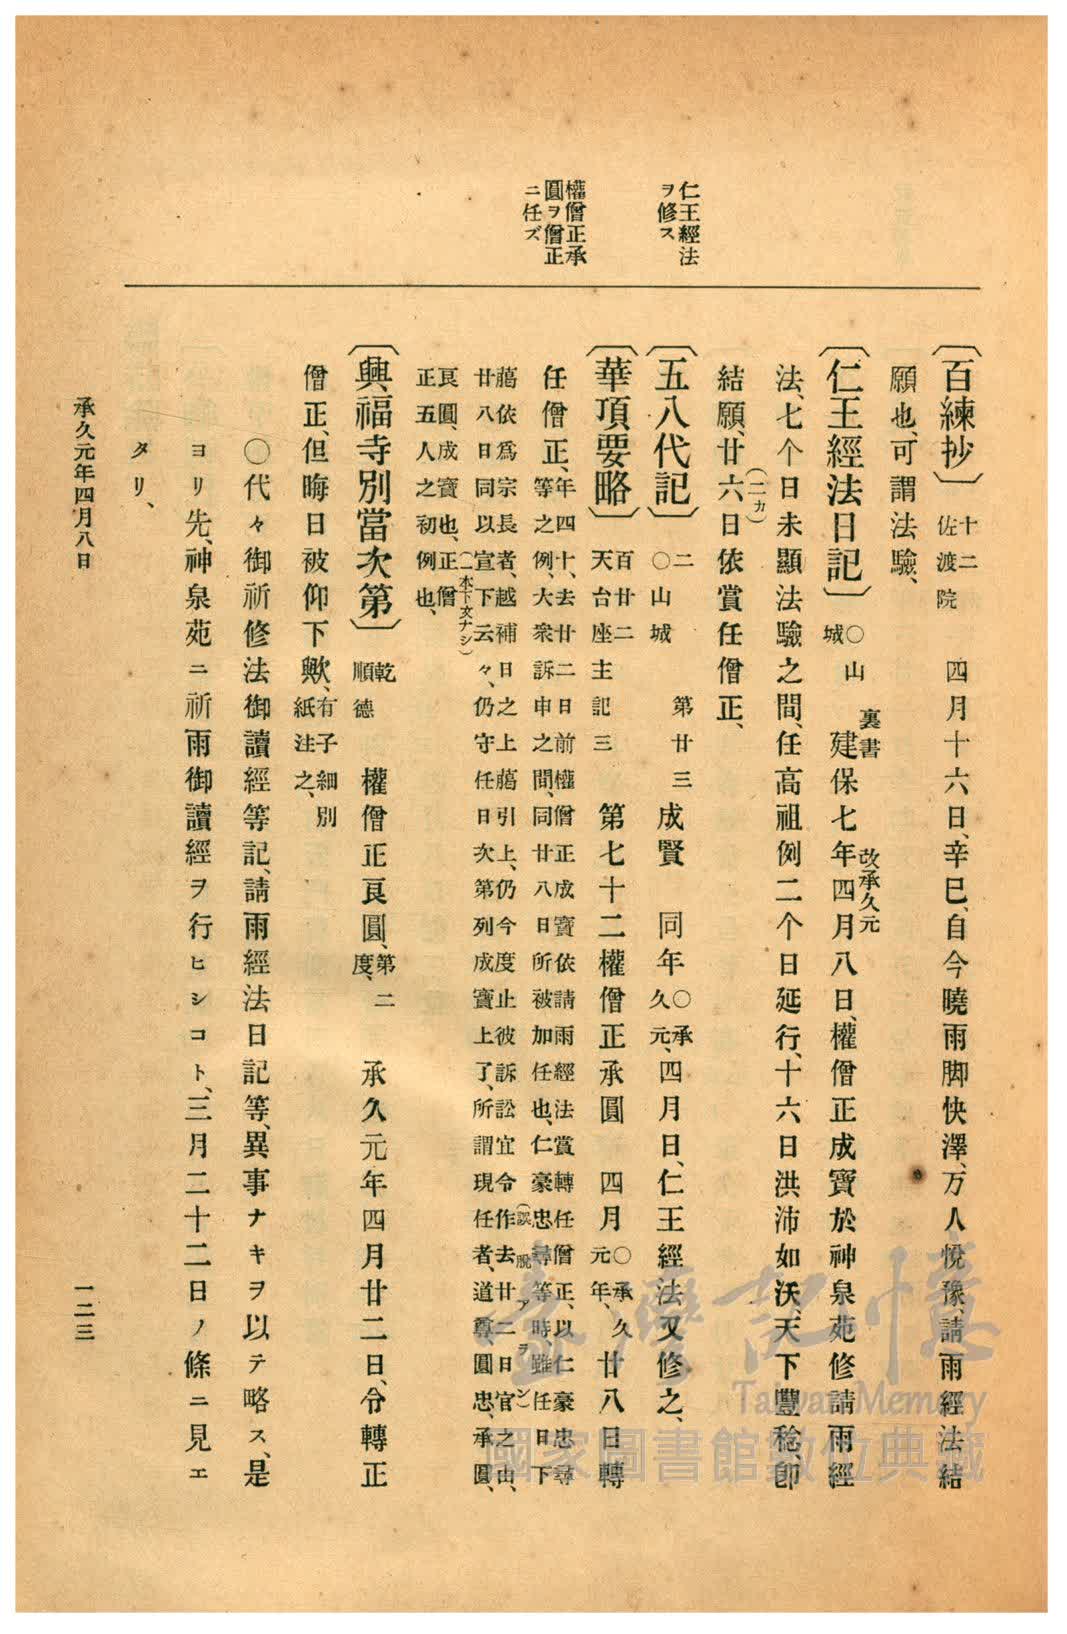 仁王經法
ヲ修ス
權僧正承
圓ヲ僧正
ニ任ズ
〔百練抄〕十二佐渡院 四月十六日、辛巳、自今曉雨脚快澤、万人悅豫、請雨經法結
願也、可謂法驗、
〔仁王經法日記〕○山城 裏書 建保七年改承久元四月八日、權僧正成寶於神泉苑修請雨經
法、七个日未顯法驗之間、任高祖例二个日延行、十六日洪沛如沃、天下豐稔、卽
結願、廿六(二カ)日依賞任僧正、
〔五八代記〕二○山城 第廿三 成賢 同年○承久元、四月日、仁王經法又修之、
〔華頂要略〕百廿二天台座主記三 第七十二權僧正承圓 四月○承久元年、廿八日轉
任僧正、年四十、去廿二日前權僧正成寶依請雨經法賞轉任僧正、以仁豪忠尋
等之例、大衆訴申之間、同廿八日所被加任也、仁豪忠尋等時、雖任日下
(誤脫アラン)
﨟依爲宗長者、越補日之上﨟引上、仍今度止彼訴訟宜令作去廿二日官之由、
廿八日同以宣下云々、仍守任日次第列成寶上了、所謂現任者、道尊、圓忠、承圓、
(一本下文ナシ)
良圓、成寶也、正僧
正五人之初例也、
〔興福寺別當次第〕乾順德 權僧正良圓、第二度、 承久元年四月廿二日、令轉正
僧正、但晦日被仰下歟、有子細別紙注之、
○代々御祈修法御讀經等記、請雨經法日記等、異事ナキヲ以テ略ス、是
ヨリ先、神泉苑ニ祈雨御讀經ヲ行ヒシコト、三月二十二日ノ條ニ見エ
タリ、
承久元年四月八日
一二三
臺灣記憶
Taiwan Memory
國家圖書館數位典藏